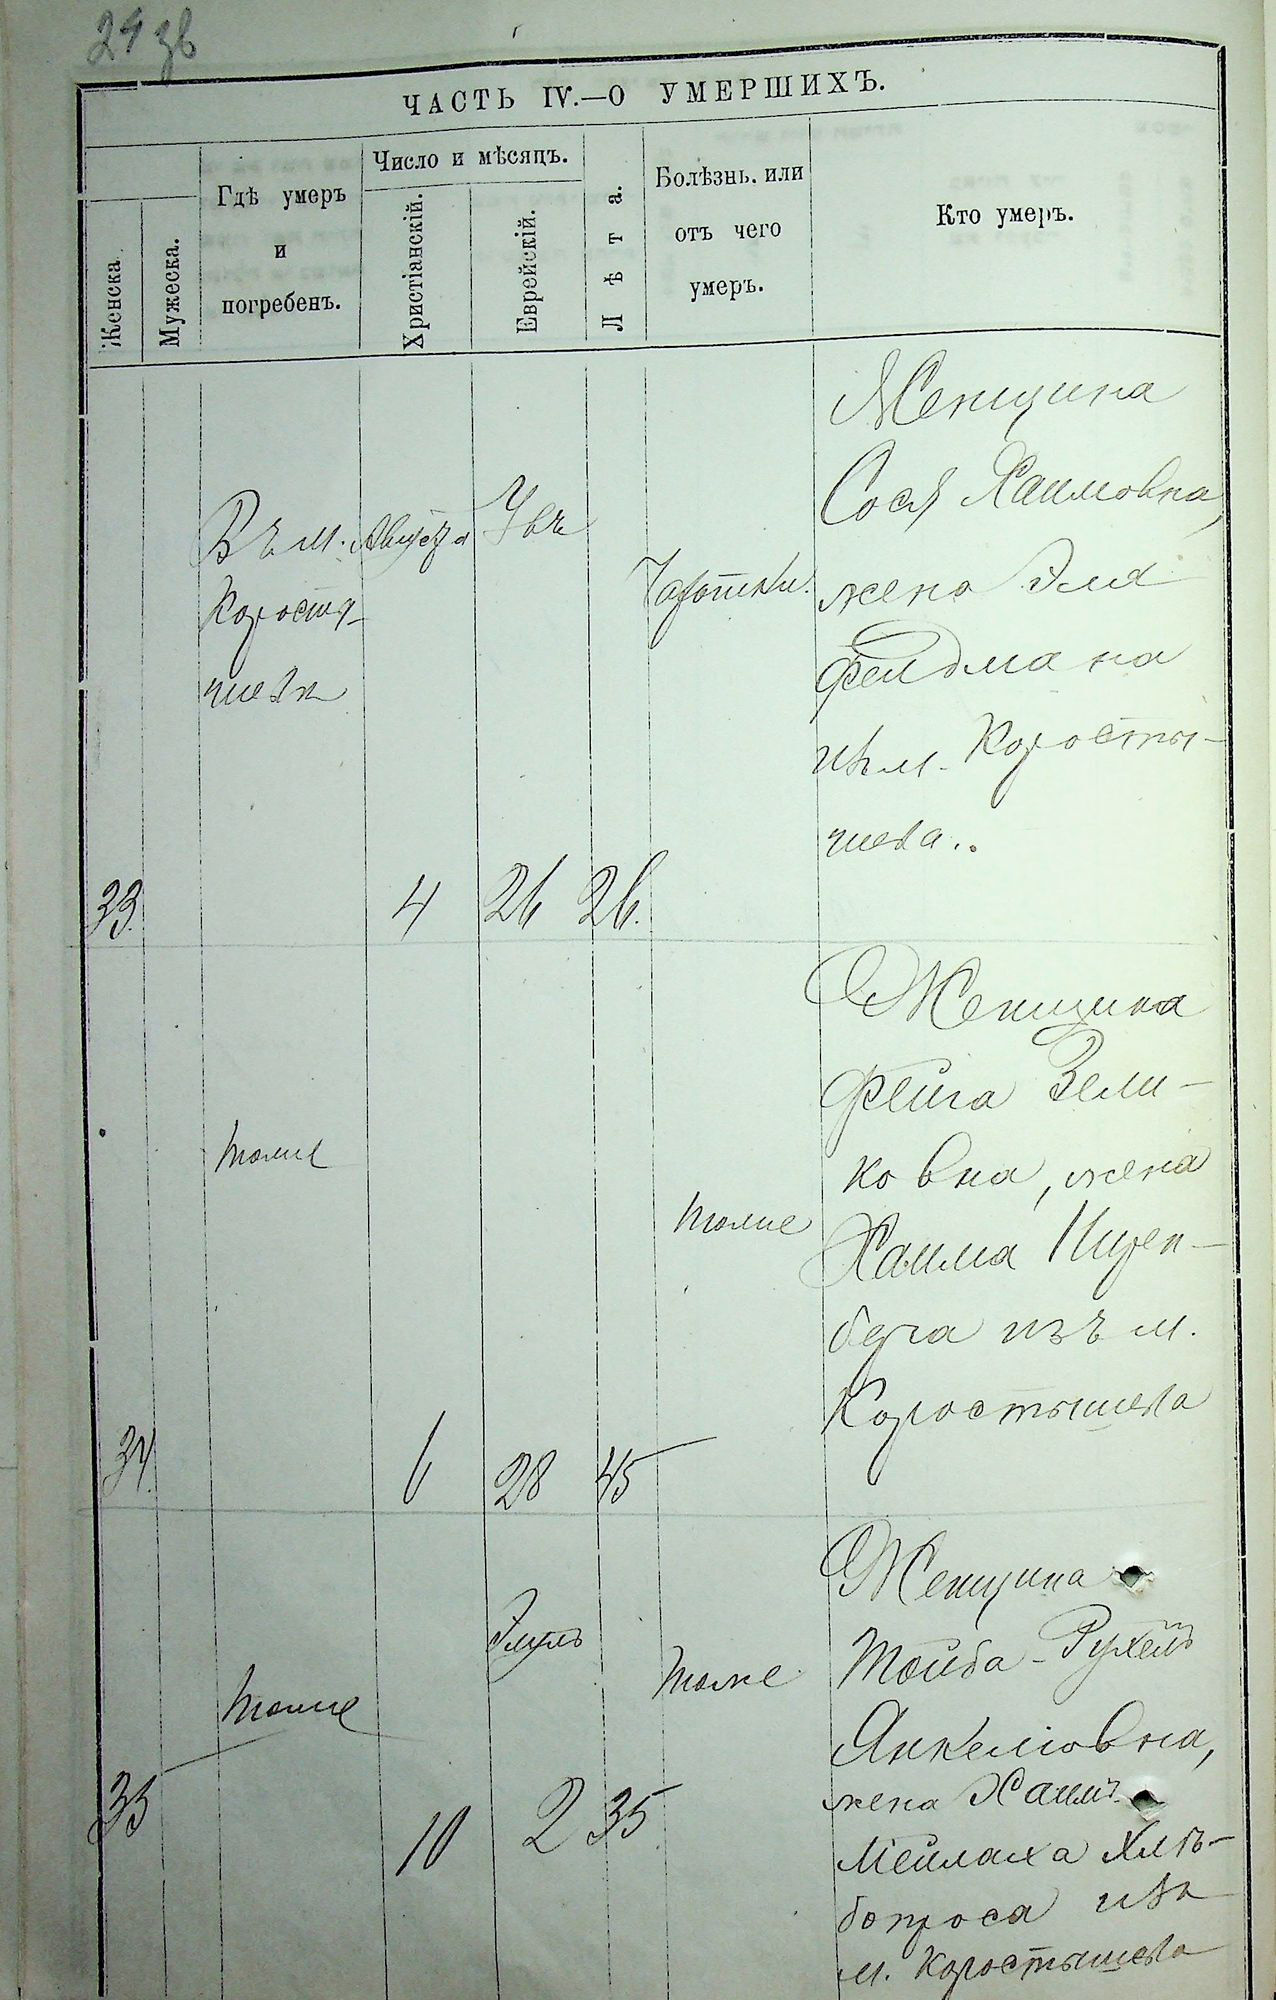 29 зв
ЧАСТЬ IV.—О УМЕРШИХЪ.
Женска.
Мужеска.
Гдѣ умеръ
и
погребенъ.
Число и мѣсяцъ.
Христіанскій.
Еврейскій.
Лѣта.
Болѣзнь. или
отъ чего
умеръ.
Кто умеръ.
33.
Въ м.
Корости-
шевѣ
Августа
4
26
26.
Чахотки.
Женщина
Сося Хаимовна,
жена Эля
Фельдмана
изъ м. Коросты-
шева..
34.
тоже
6
28
45
тоже
Женщина
Фейга Зели-
ковна, жена
Хаима
берга изъ м.
Коростышева
35
тоже
10
Элулъ
2
35
тоже
Женщина
Тойба-Рухель
Янкелiовна,
жена Хаимъ
Мейлаха Хлѣ-
бопроса изъ
м. Коростышева